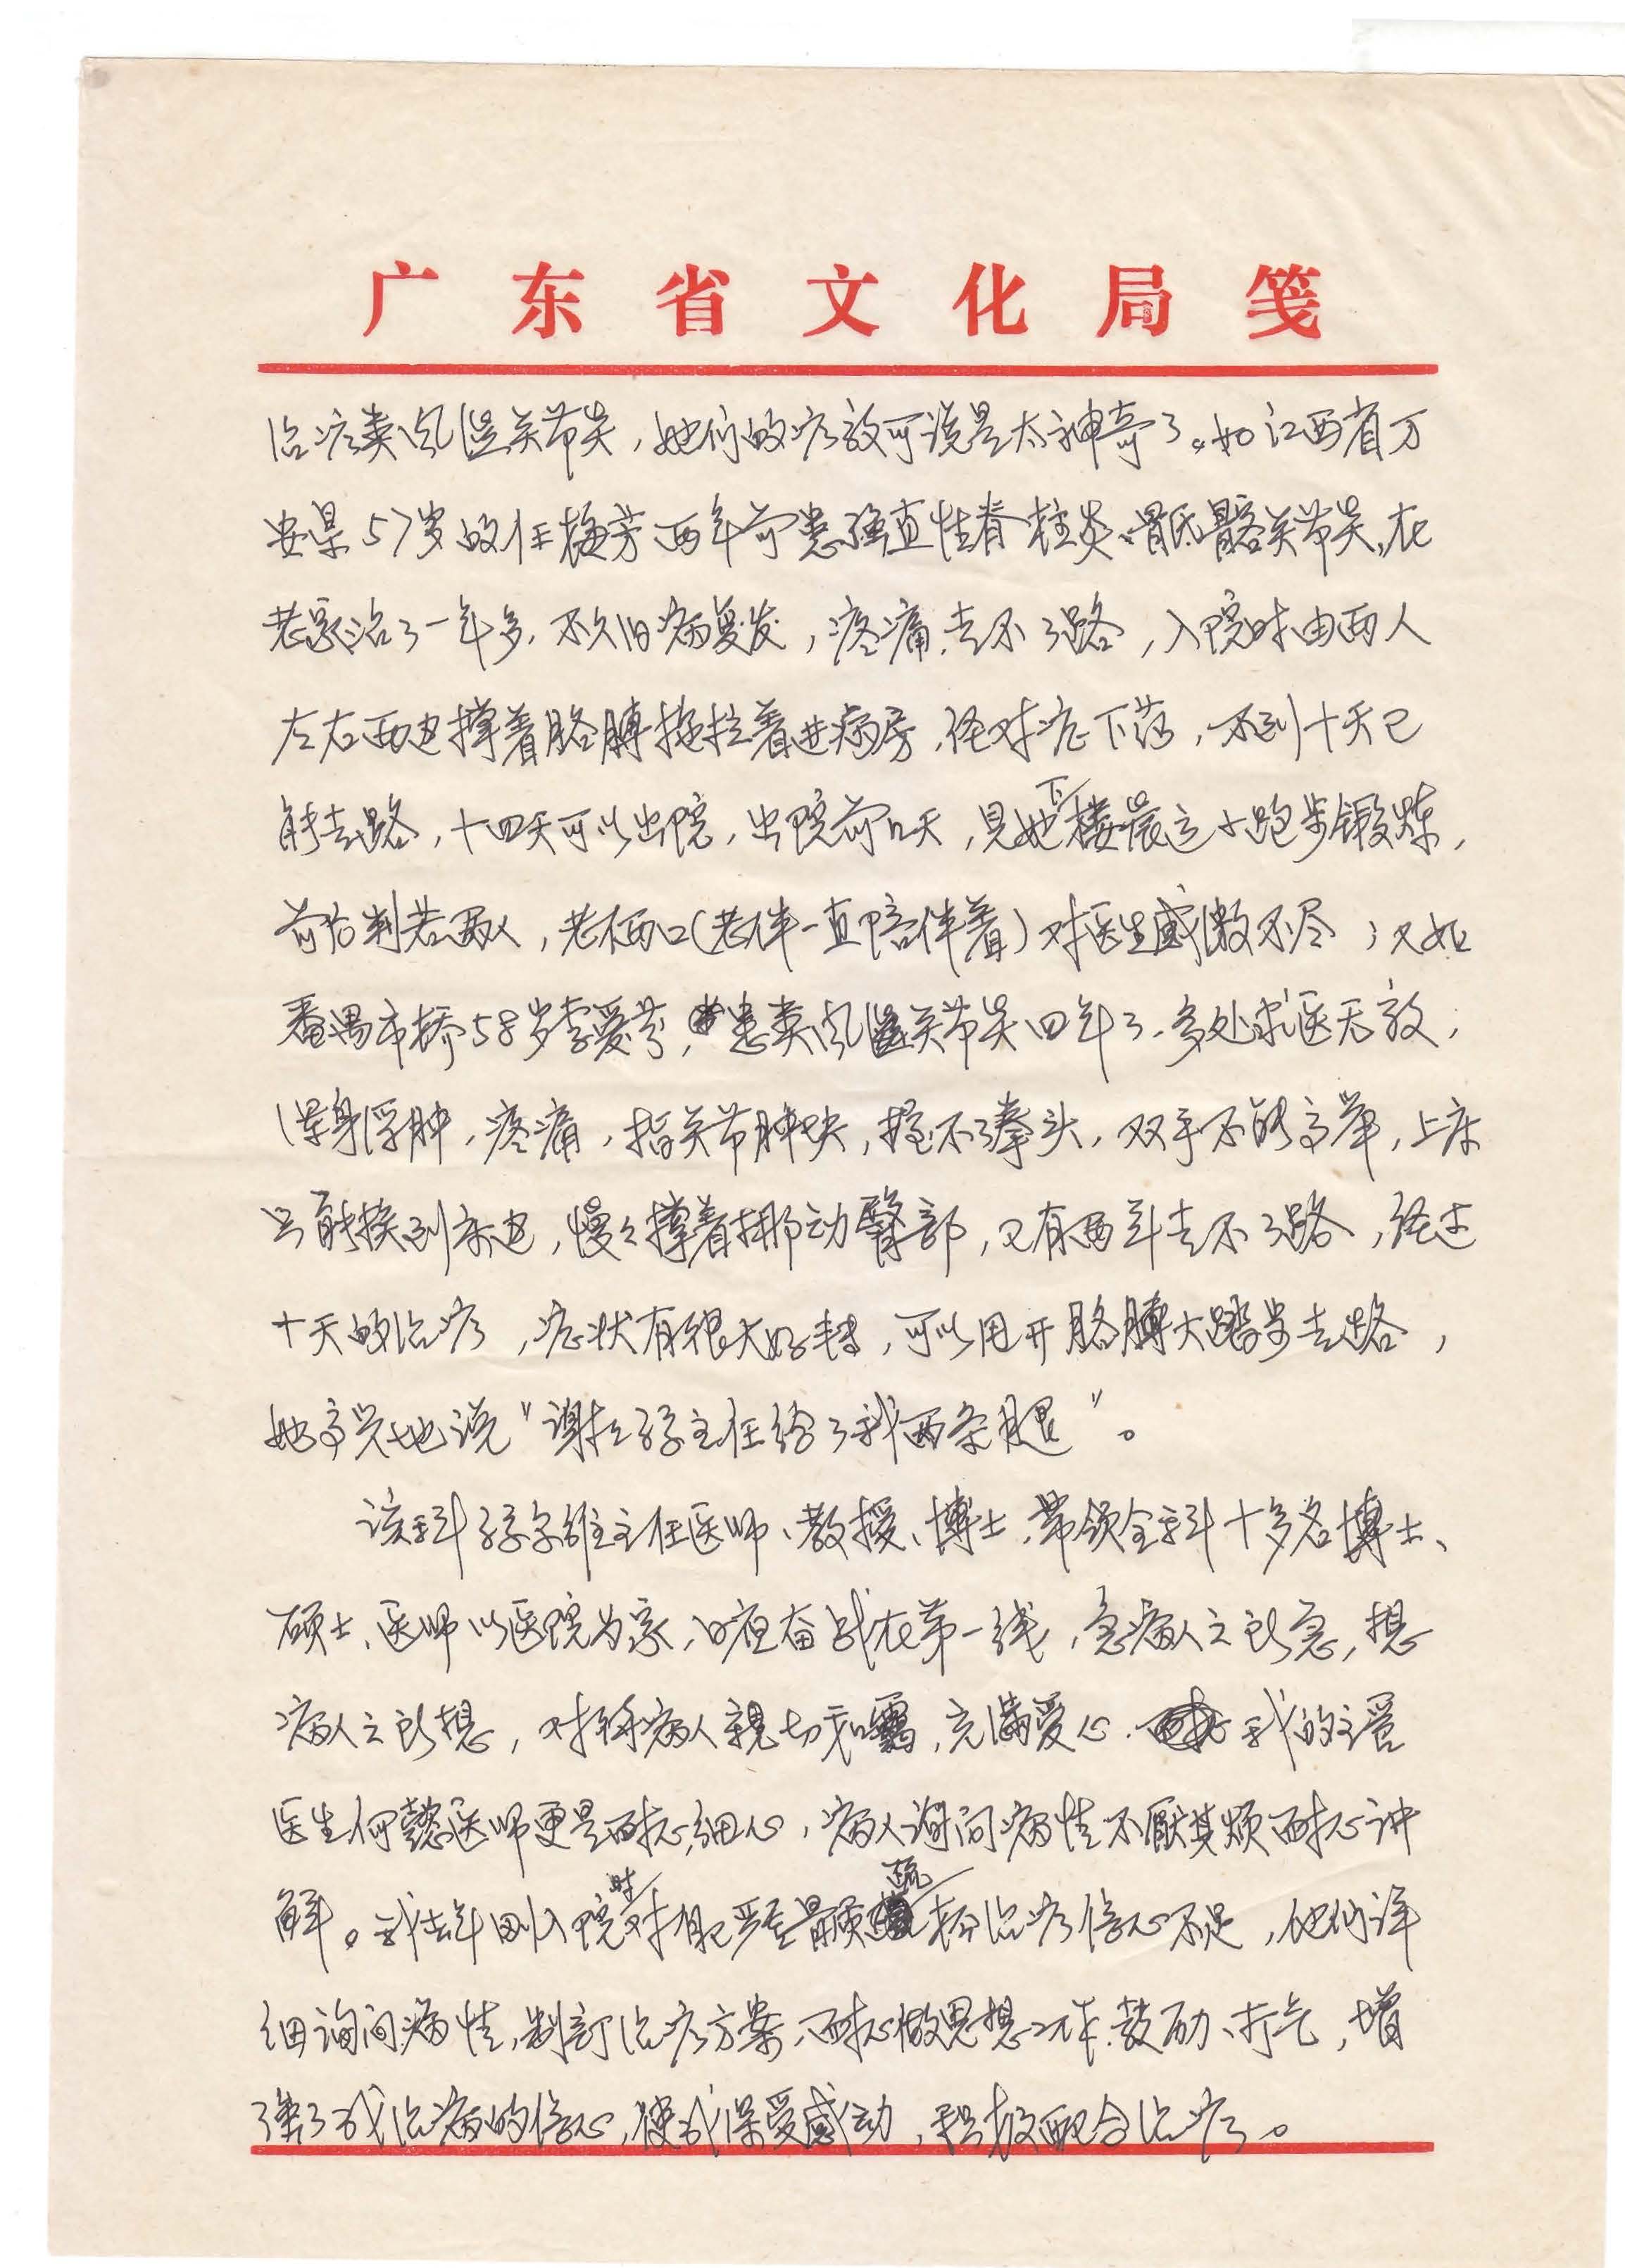 广东省文化局笺
治疗类风湿关节炎，她们的疗效可说是太神奇了。如江西省万
安县57岁的任梅芳两年前患强直性脊柱炎、骶髂关节炎，在
老家治了一年多，不久旧病复发，疼痛，走不了路，入院时由两人
左右两边撑着胳膊拖拉着进病房，经对症下药，不到十天已
能走路，十四天可以出院，出院前几天，见她下楼晨运小跑步锻炼，
前后判若两人，老两口（老伴一直陪伴着）对医生感激不尽；又如
番禺市桥58岁李爱芬，患类风湿关节炎四年了，多处求医无效，
浑身浮肿，疼痛，指关节肿块，握不了拳头，双手不能高举，上床
只能挨到床边，慢慢撑着挪动臀部，又有两年走不了路，经过
十天的治疗，症状有很大好转，可以甩开胳膊大踏步走路，
她高兴地说“谢拉孩主任给了我两条腿”。
该科主任医师、教授、博士，带领全科十多名博士、
硕士、医师以医院为家，日夜奋战在第一线，急病人之所急，想
病人之所想，对待病人亲切和蔼，充满爱心。我的主管
医生何懿医师更是耐心细心，病人询问病情不厌其烦耐心讲
解。我去年刚入院时对自己严重骨质疏松治疗信心不足，他们详
细询问病情，制订治疗方案，耐心做思想工作，鼓励、打气，增
强了我治病的信心，使我深受感动，积极配合治疗。